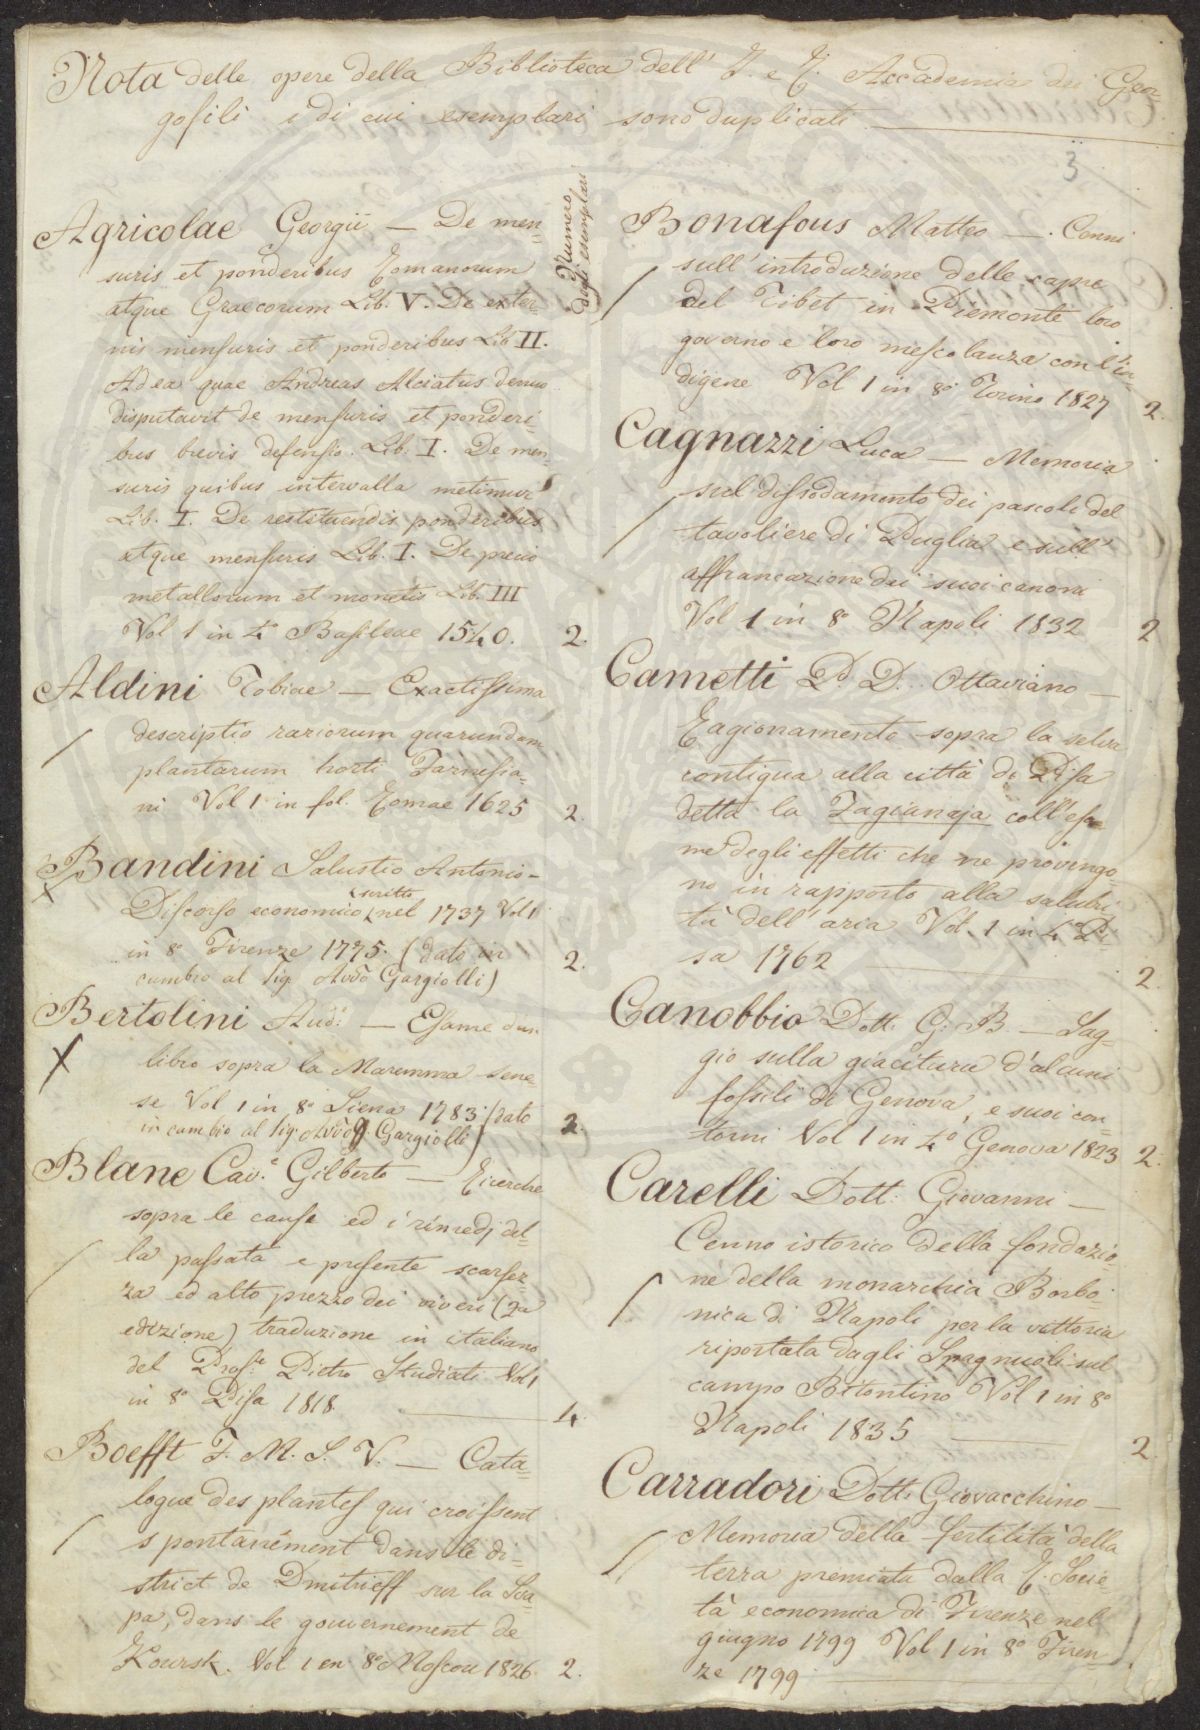 Nota delle opere della Biblioteca dell' I. e R. Accademia dei Geor-
gofili e di cui esemplari sono duplicati
3
Numero
degli esemplari
Agricolae Georgii — De men-
suris et ponderibus Romanorum
atque Graecorum Lib. V. De exter-
nis mensuris et ponderibus Lib II.
Ad ea quae Andreas Alciatus denuo
disputavit de mensuris et ponderi-
bus brevis defensio. Lib. I. De men-
suris quibus intervalla metimur
Lib. I. De restituendis ponderibus
atque mensuris Lib. I. De precio
metallorum et monetis Lib. III
Vol 1 in 4o Basileae 1540. 2.
Aldini Tobiae — Exactissima
descriptio rariorum quarundam
plantarum horti Farnesia-
ni Vol 1 in fol. Romae 1625 2.
Bandini Salustio Antonio —
Discorso economico scritto nel 1737 Vol 1
in 8o Firenze 1775. (dato in
cambio al Sig. Avvo Gargiolli) 2.
Bertolini Aud: — Esame d'un
libro sopra la Maremma Sene-
se Vol 1 in 8o Siena 1783 (dato
in cambio al Sig. Avvo G. Gargiolli) 2.
Blane Cav.e Gilberto — Ricerche
sopra le cause ed i rimedj del-
la passata e presente scarsez-
za ed alto prezzo dei viveri (2a
edizione) traduzione in italiano
del Prof.re Pietro Studiati Vol 1
in 8o Pisa 1818 4
Boefft F. M. S. V. — Cata-
logue des plantes qui croissent
spontanément dans le di-
strict de Dmitrieff sur la Sva-
pa, dans le gouvernement de
Koursk. Vol 1 en 8o Moscou 1826 2.
Bonafous Matteo — Cenni
sull' introduzione delle capre
del Tibet in Piemonte loro
governo e loro mescolanza con l'in-
digene Vol 1 in 8o Torino 1827 2.
Cagnazzi Luca — Memoria
sul dissodamento dei pascoli del
tavoliere di Puglia e sull'
affrancazione dei suoi canoni
Vol 1 in 8o Napoli 1832 2
Cametti P. D. Ottaviano —
Ragionamento sopra la selva
contigua alla città di Pisa
detta la Fagianaja coll'esa-
me degli effetti che ne proven­go-
no in rapporto alla salubri-
tà dell' aria Vol. 1 in 4o Pi-
sa 1762 2
Canobbio Dott. G. B. — Sag-
gio sulla giacitura d'alcuni
fossili di Genova, e suoi con-
torni Vol 1 in 4o Genova 1823 2.
Carelli Dott. Giovanni —
Cenno istorico della fondazio-
ne della monarchia Borbo-
nica di Napoli per la vittoria
riportata dagli Spagnuoli sul
campo Bitontino Vol 1 in 8o
Napoli 1835 2
Carradori Dott. Giovacchino —
Memoria della fertilità della
terra premiata dalla R. Socie-
tà economica di Firenze nel
giugno 1799 Vol 1 in 8o Firen-
ze 1799